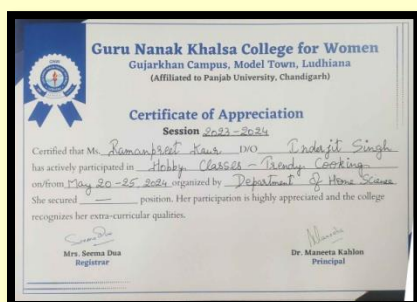 Guru Nanak Khalsa College for Women
Gujarkhan Campus, Model Town, Ludhiana
(Affiliated to Panjab University, Chandigarh)
Certificate of Appreciation
Session 2023-2024
Certified that Ms. Ramanpreet Kaur D/O Inderjit Singh
has actively participated in Hobby Classes - Trendy Cooking
on/from May 20-25, 2024 organized by Department of Home Science
She secured — position. Her participation is highly appreciated and the college
recognizes her extra-curricular qualities.
Mrs. Seema Dua
Registrar
Dr. Maneeta Kahlon
Principal